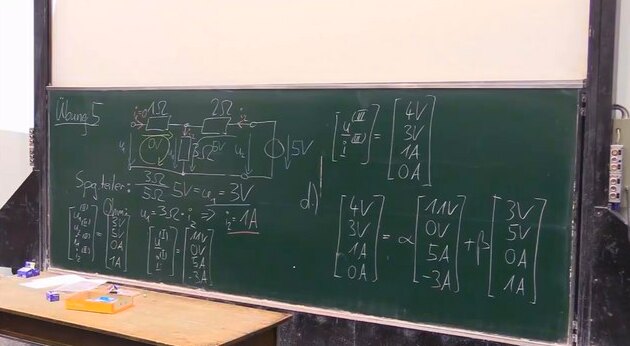 Übung 5
1Ω 2Ω
i₁=0 i₂
u₁ 0V 3Ω 5V u₂ 5V
Spg.teiler: 3Ω/5Ω 5V = u₁ = 3V
Ohm: u₁ = 3Ω · i₂ ⇒ i₂ = 1A
[u₁(II) u₂(II) i₁(II) i₂(II)] = [3V 5V 0A 1A]
[u(I) i(I)] = [11V 0V 5A -3A]
[u(III) i(III)] = [4V 3V 1A 0A]
d) [4V 3V 1A 0A] = α [11V 0V 5A -3A] + β [3V 5V 0A 1A]